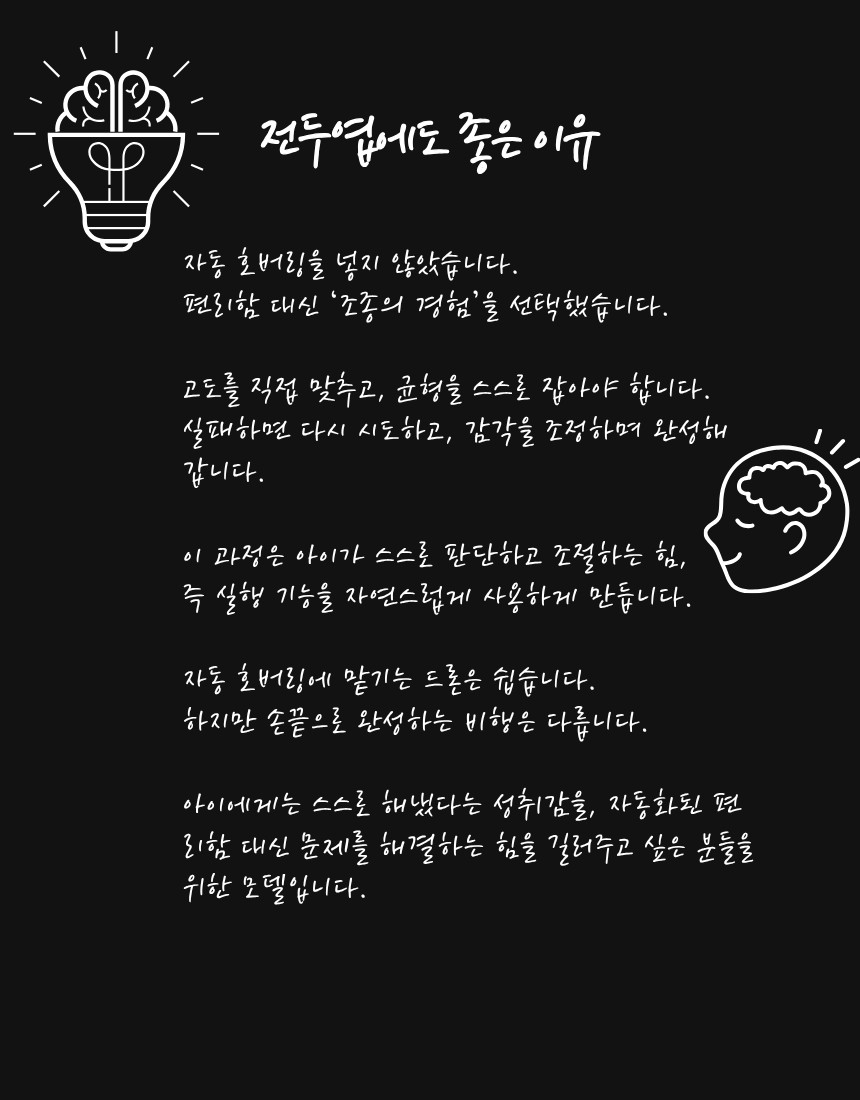 전두엽에도 좋은 이유
자동 호버링을 넣지 않았습니다.
편리함 대신 ‘조종의 경험’을 선택했습니다.
고도를 직접 맞추고, 균형을 스스로 잡아야 합니다.
실패하면 다시 시도하고, 감각을 조정하며 완성해
갑니다.
이 과정은 아이가 스스로 판단하고 조절하는 힘,
즉 실행 기능을 자연스럽게 사용하게 만듭니다.
자동 호버링에 맡기는 드론은 쉽습니다.
하지만 손끝으로 완성하는 비행은 다릅니다.
아이에게는 스스로 해냈다는 성취감을, 자동화된 편
리함 대신 문제를 해결하는 힘을 길러주고 싶은 분들을
위한 모델입니다.